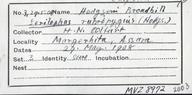 No. 3, Name Hodgsons Broadbill
Serilophus rubropygius (Hodgs.)
Collector H. N. Coltart
Locality Margherita, Assam
Date 29. May. 1908
Set 3 Identity Sure Incubation
Nest
MVZ 8992 2003